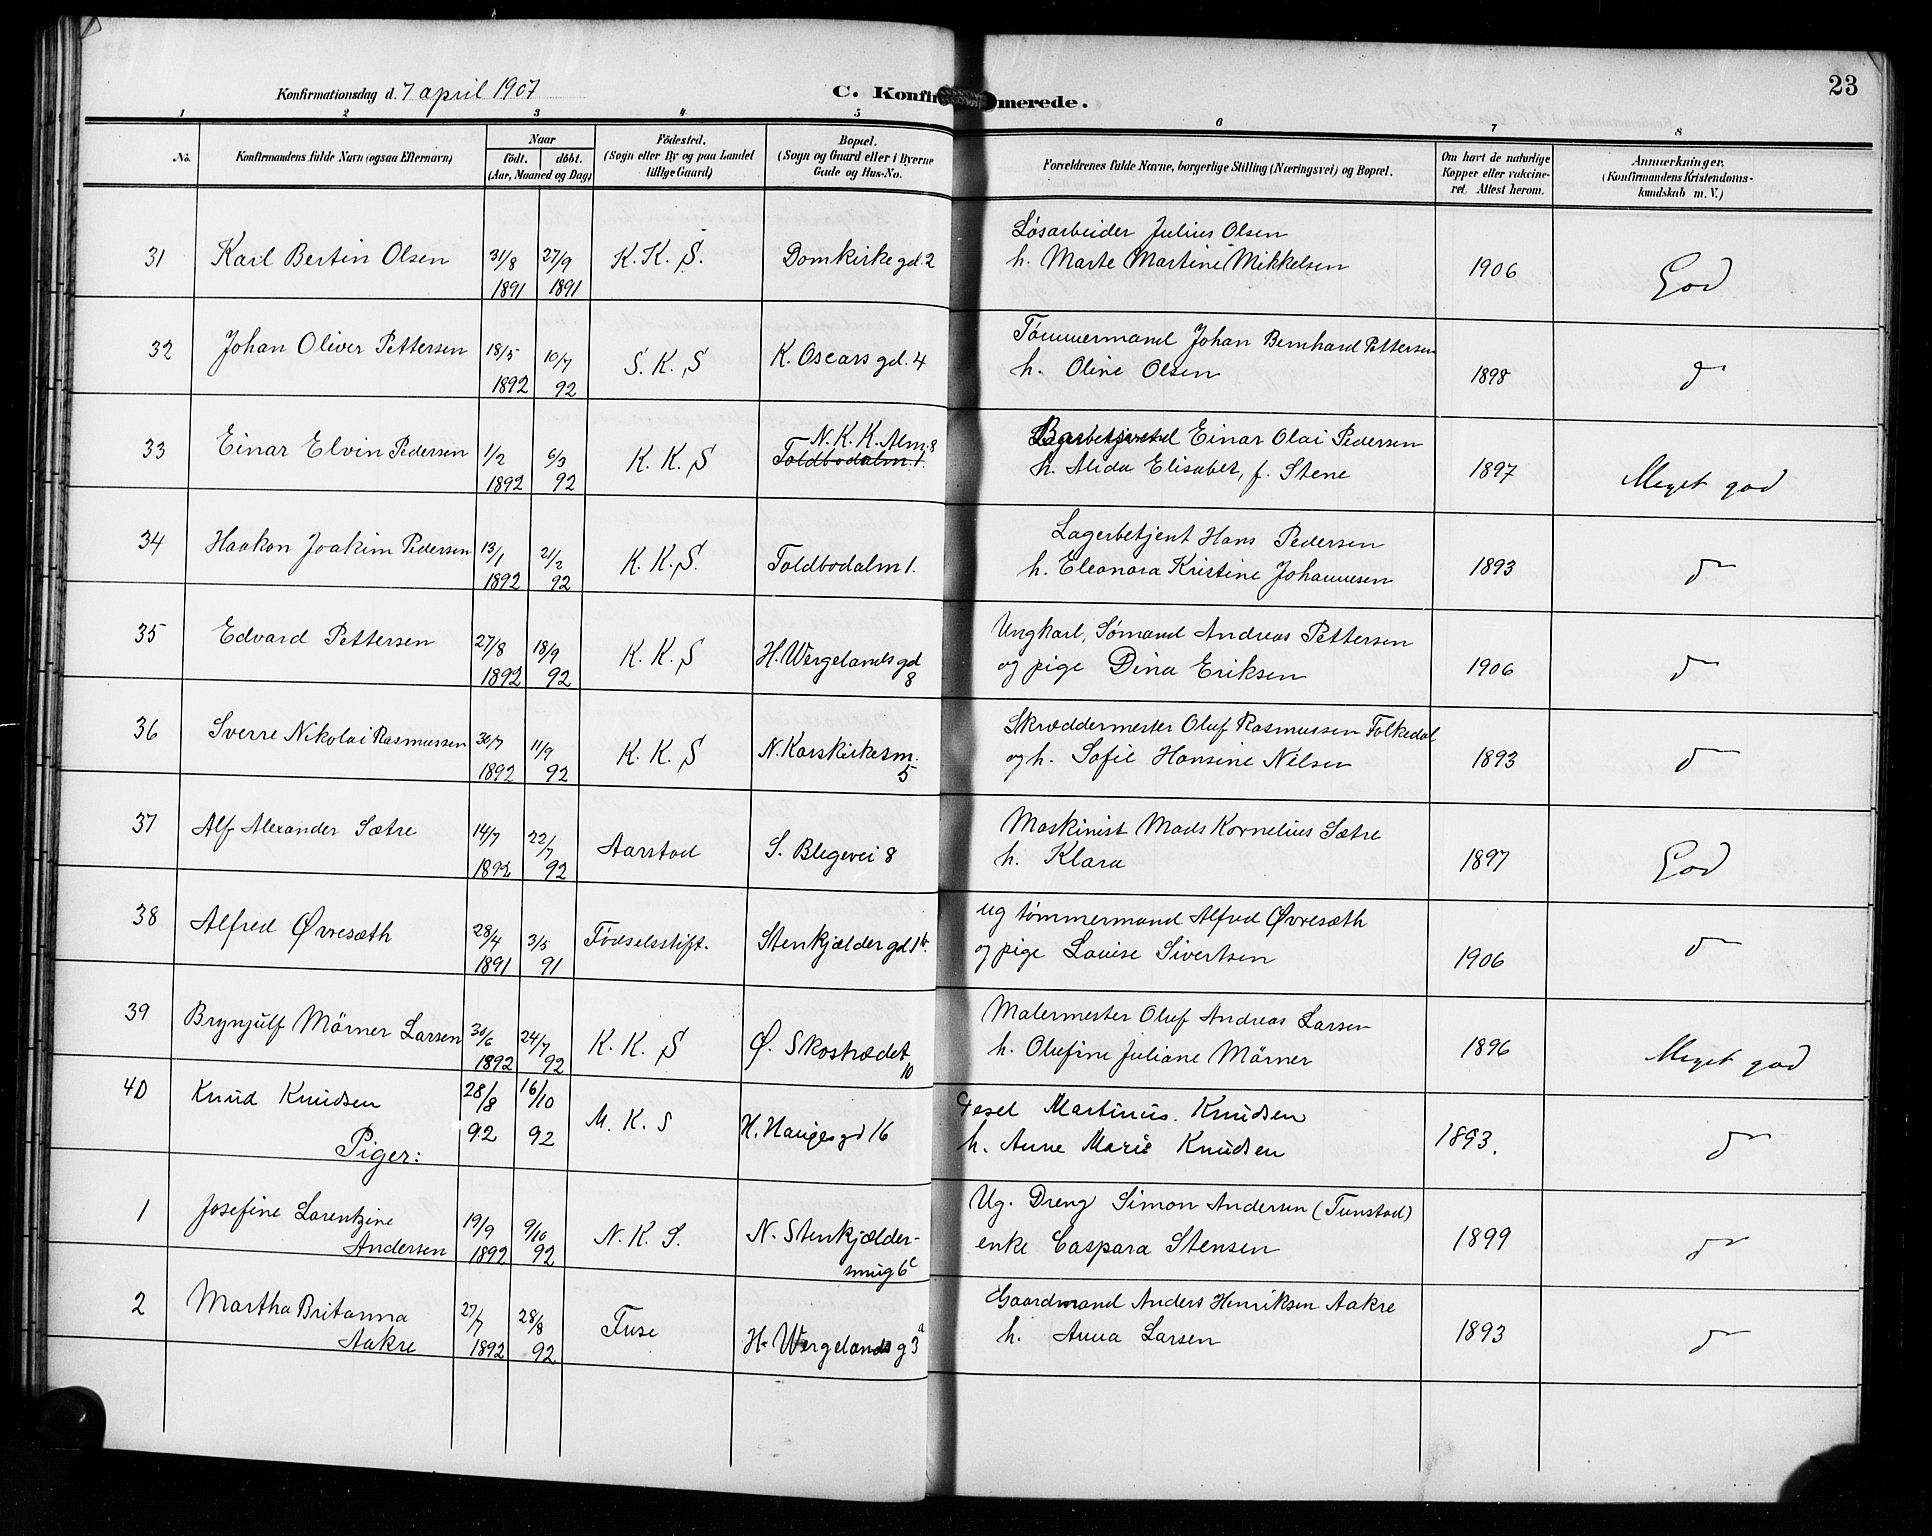 Konfirmationsdag d. 7 april 1907
C. Konfir merede.
23
1 2 3 4 5 6 7 8
No.
Konfirmandens fulde Navn (ogsaa Efternavn)
Naar
födt. döbt.
(Aar, Maaned og Dag)
Födested.
(Sogn eller By og paa Landet
tillige Gaard)
Bopæl.
(Sogn og Gaard eller i Byerne
Gade og Hus-No.
Forældrenes fulde Navne, borgerlige Stilling (Næringsvei) og Bopæl.
Om havt de naturlige
Kopper eller vakcine-
ret. Attest herom.
Anmærkninger.
(Konfirmandens Kristendoms-
kundskab m. V.)
31 Karl Bertin Olsen 31/8 1891 27/9 1891 K. K. S. Domkirkegd. 2
Løsarbeider Julius Olsen
h. Marte Martine Mikkelsen 1906 God
32 Johan Oliver Pettersen 18/5 1892 10/7 92 S. K. S K. Oscars gd. 4
Tømmermand Johan Bernhard Pettersen
h. Oline Olsen 1898 do
33 Einar Elvin Pedersen 1/2 1892 6/3 92 K. K. S N. K. K. Alm. 8
Toldbodalm 1.
Einar Olai Pedersen
h. Alida Elisabet, f. Stene 1897 Meget god
34 Haakon Joakim Pedersen 13/1 1892 21/2 92 K. K. S. Toldbodalm 1.
Lagerbetjent Hans Pedersen
h. Eleonora Kristine Johannesen 1893 do
35 Edvard Pettersen 27/8 1892 18/9 92 K. K. S H. Wergelandsgd
8
Ungkarl, Sømand Andreas Pettersen
og pige Dina Eriksen 1906 do
36 Sverre Nikolai Rasmussen 30/7 1892 11/9 92 K. K. S N. Korskirkesm.
5
Skræddermester Oluf Rasmussen Folkedal
og h. Sofie Hansine Nilsen 1893 do
37 Alf Alexander Sætre 14/7 1892 22/7 92 Aarstad S. Blegevei 8
Maskinist Mads Kornelius Sætre
h. Klara 1897 God
38 Alfred Øvresæth 28/4 1891 3/5 91 Fødselsstift. Stenkjældergd 1 b.
Ug tømmermand Alfred Øvresæth
og pige Louise Sivertsen 1906 do
39 Brynjulf Mörner Larsen 30/6 1892 24/7 92 K. K. S Ø. Skostrædet
10
Malermester Oluf Andreas Larsen
h. Olufine Juliane Mörner 1896 Meget god
40 Knud Knudsen 28/8 92 16/10 92 M. K. S H. Hauges gd 16
Gesel Martinus Knudsen
h. Anne Marie Knudsen 1893. do
Piger:
1 Josefine Lorentzine
Andersen 19/9 1892 9/10 92 N. K. S. N. Stenkjælder-
smug 6 c
Ug. Dreng Simon Andersen (Tunstad)
enke Caspara Stensen 1899 do
2 Martha Britanna
Aakre 27/7 1892 28/8 92 Fuse H. Wergelands g 3 a
Gaardmand Anders Henriksen Aakre
h. Anna Larsen 1893 do